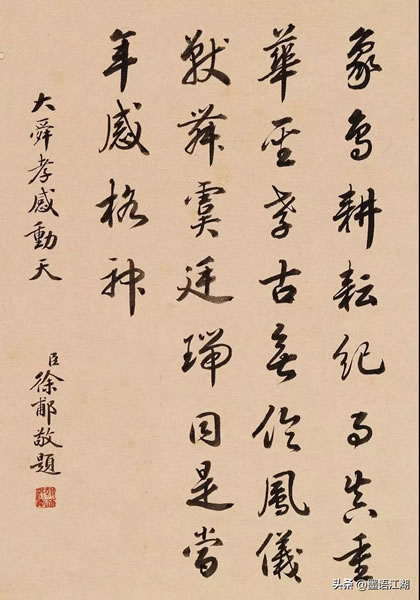 象鳥耕耘紀事真重
華至孝古無倫鳳儀
獸舞虞廷瑞同是當
年感格神
大舜孝感動天
臣徐郙敬題
头条 @墨语江湖